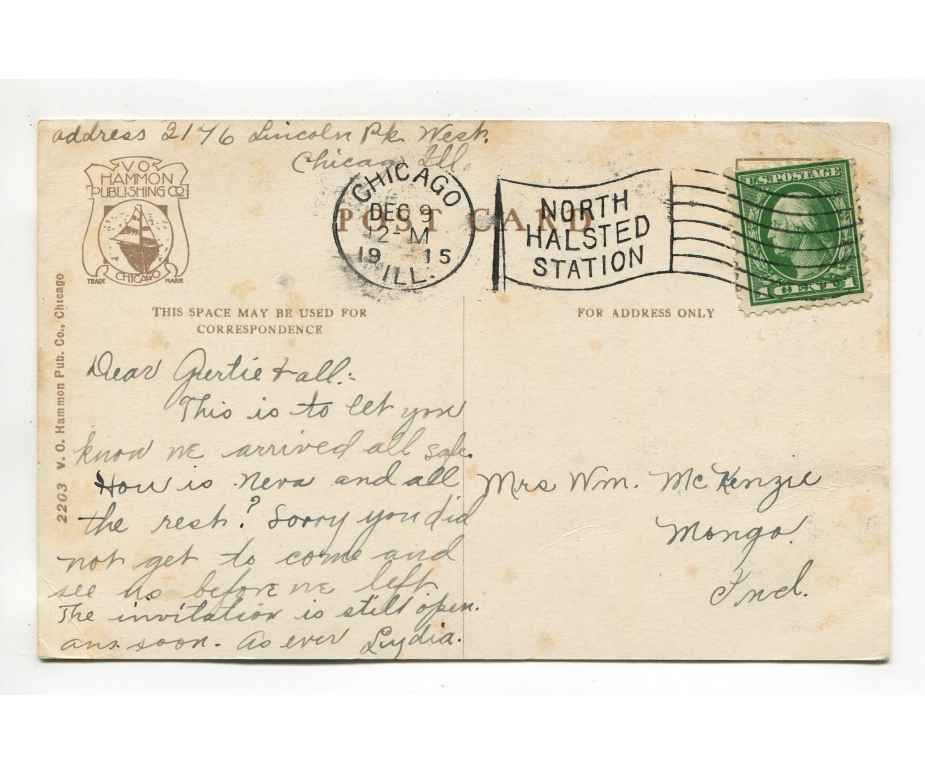 address 2176 Lincoln Pk. West.
Chicago Ill.
V.O.
HAMMON
PUBLISHING CO.
CHICAGO
TRADE MARK
POST CARD
CHICAGO
DEC 9
12 M
1915
ILL.
NORTH
HALSTED
STATION
U.S. POSTAGE
1 CENT 1
THIS SPACE MAY BE USED FOR
CORRESPONDENCE
FOR ADDRESS ONLY
2203 V. O. Hammon Pub. Co., Chicago
Dear Gertie & all:-
This is to let you
know we arrived all safe.
How is Neva and all
the rest? Sorry you did
not get to come and
see us before we left.
The invitation is still open.
ans. soon. As ever Lydia.
Mrs Wm. McKenzie
Mongo.
Ind.